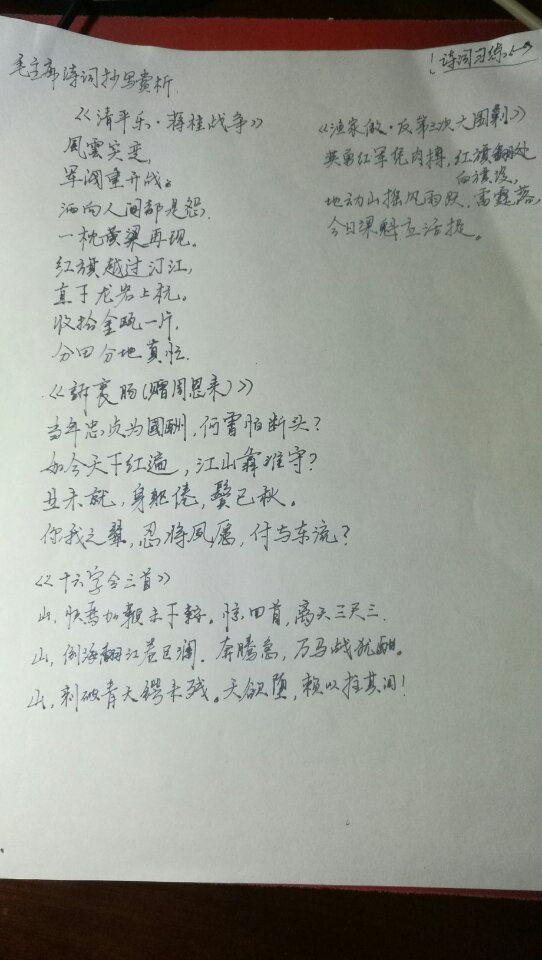 诗词习练
毛主席诗词抄写赏析
《清平乐·蒋桂战争》
風雲突变,
军阀重开战。
洒向人间都是怨,
一枕黄粱再现。
红旗越过汀江,
直下龙岩上杭。
收拾金瓯一片,
分田分地真忙.
《渔家傲·反第二次大围剿》
英勇红军
肉搏,红旗翻处
白旗没,
地动山摇风雨
,雷霆落,
今日梁
活捉。
《訴衷肠(赠周恩来)》
当年忠贞为國酬,何曾怕断头?
如今天下红遍,江山靠谁守?
业未就,身躯倦,鬓已秋。
你我之辈,忍将夙愿,付与东流?
《十六字令三首》
山,快馬加鞭未下鞍。惊回首,离天三尺三.
山,倒海翻江卷巨澜.奔腾急,万马战犹酣。
山,刺破青天锷未残。天欲墮,赖以拄其间!